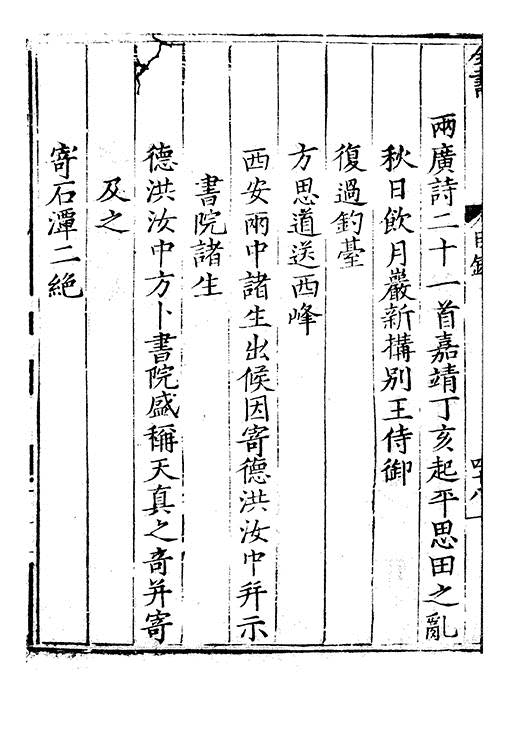 全書
目錄
四十八
兩廣詩二十一首嘉靖丁亥起平思田之亂
秋日飲月巖新搆別王侍御
復過釣臺
方思道送西峰
西安雨中諸生出候因寄德洪汝中幷示
書院諸生
德洪汝中方卜書院盛稱天真之奇幷寄
及之
寄石潭二絕